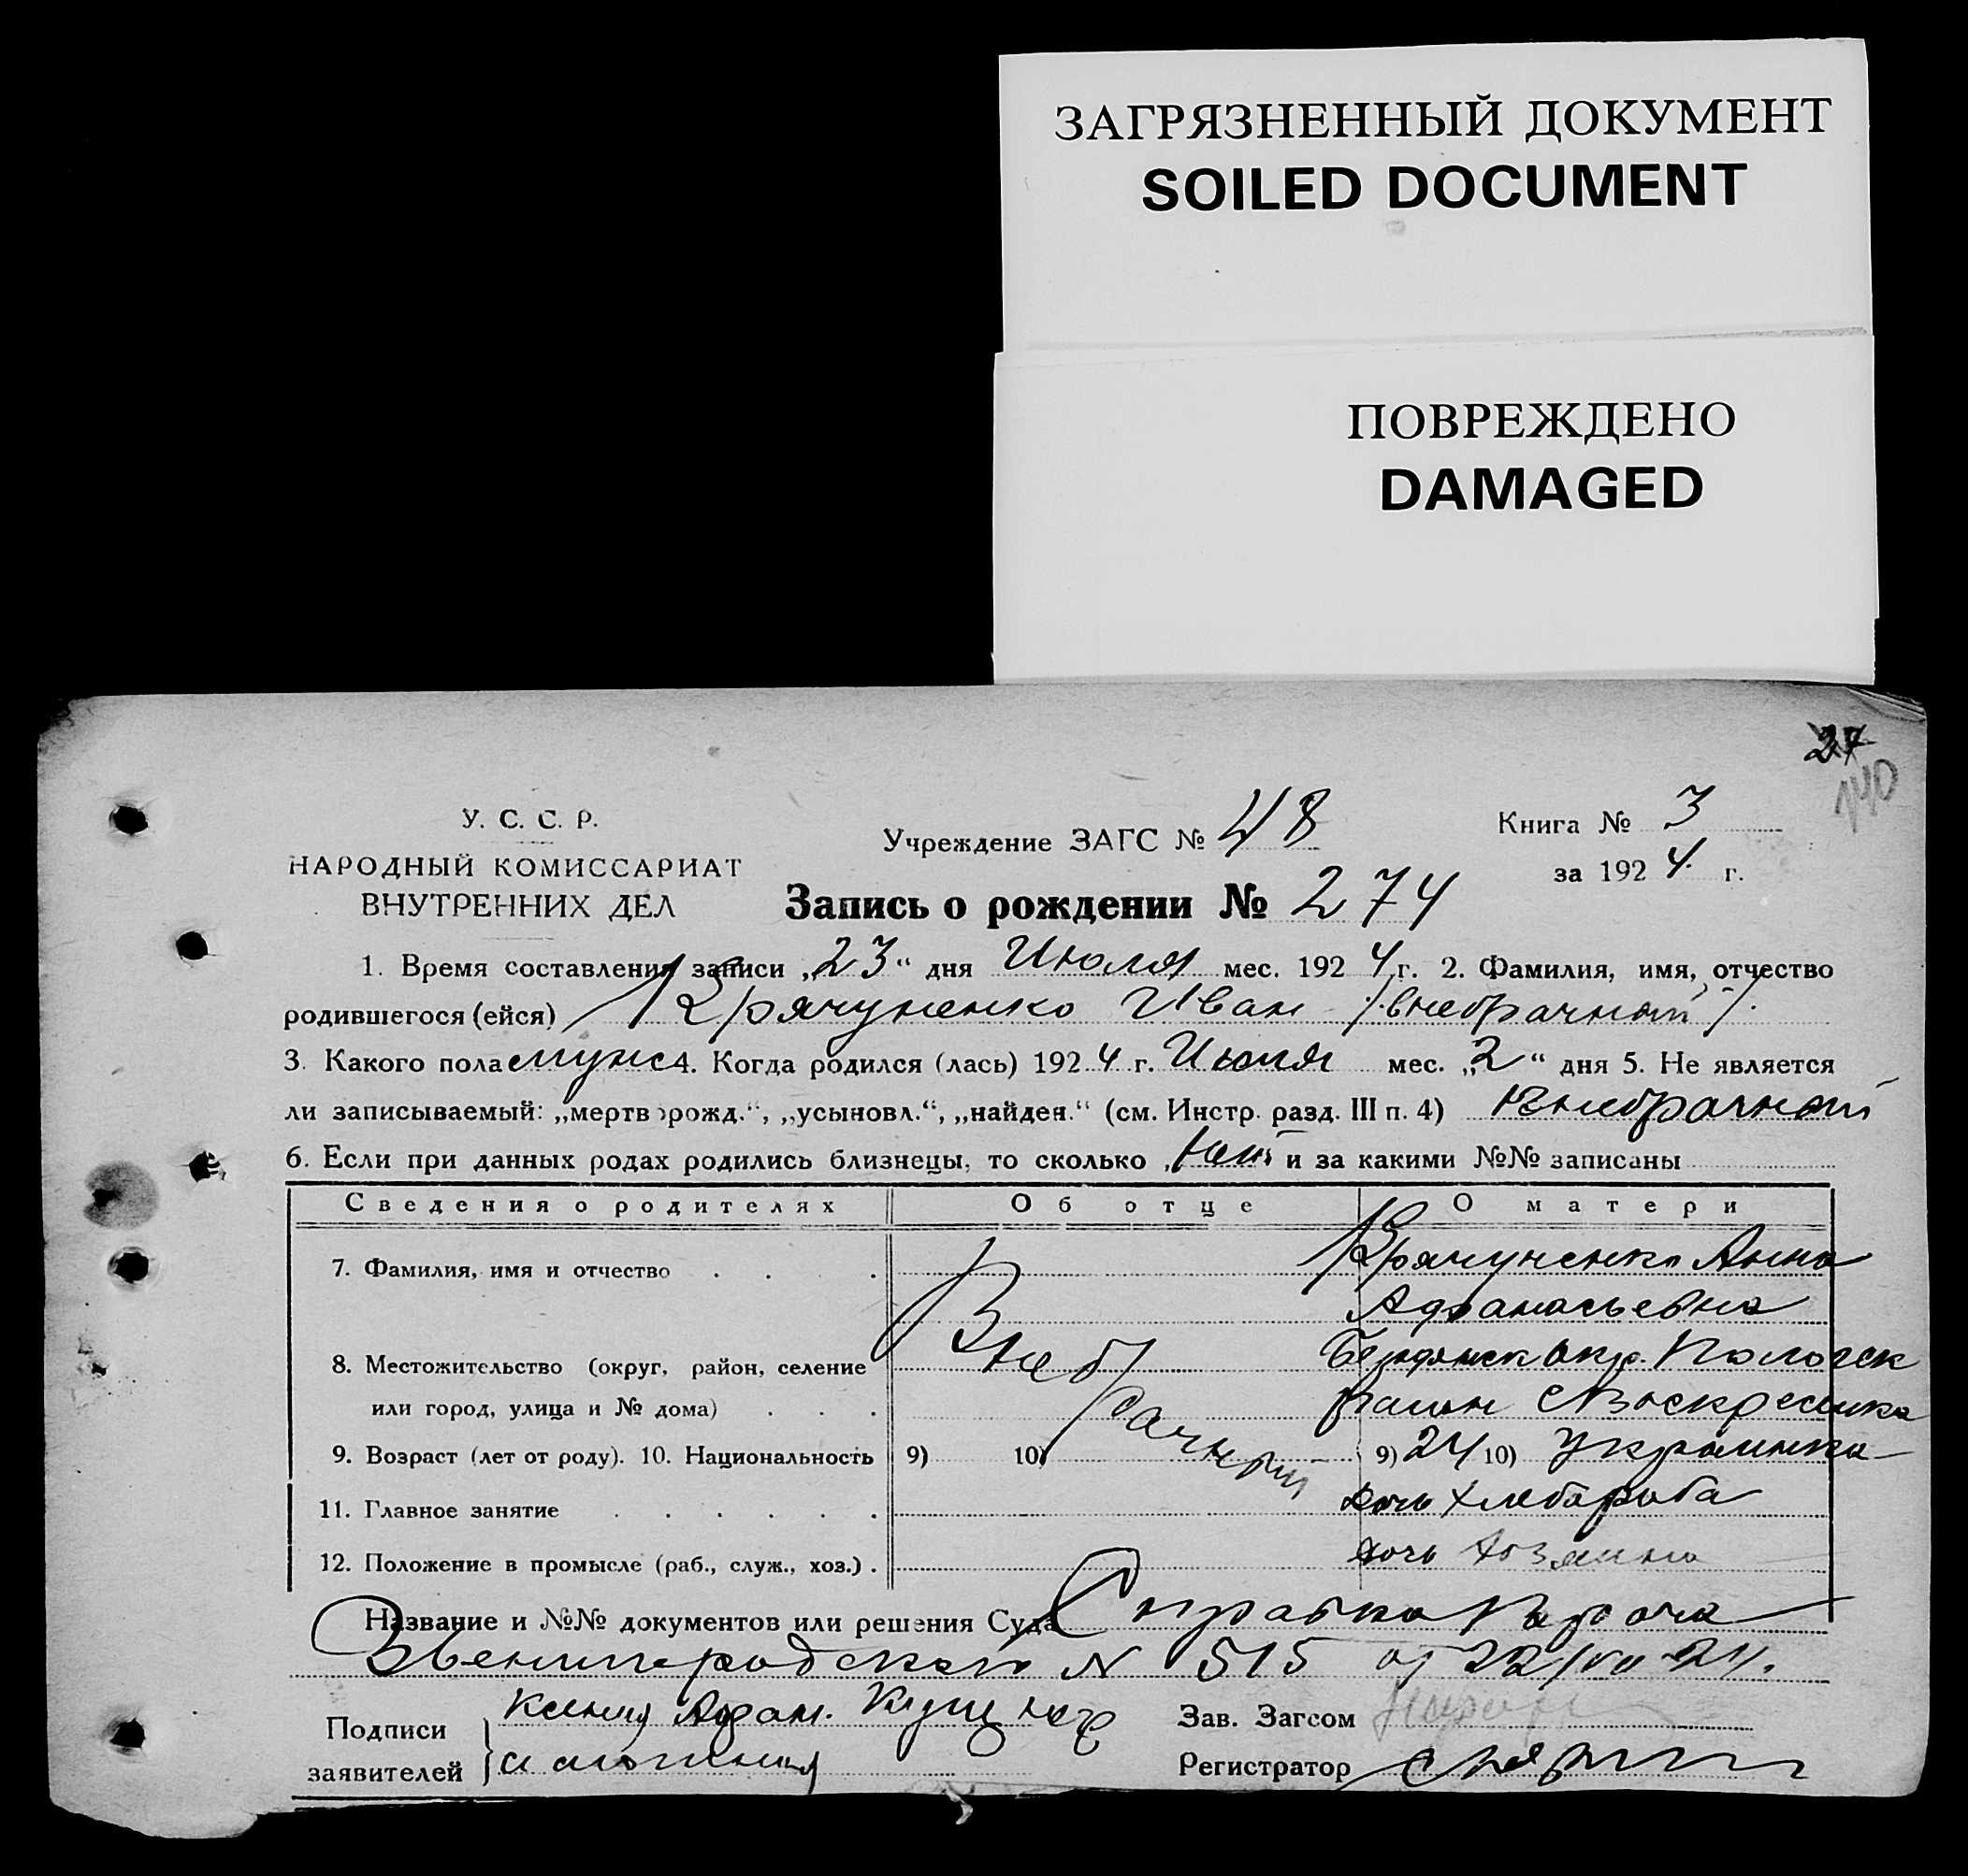 ЗАГРЯЗНЕННЫЙ ДОКУМЕНТ
SOILED DOCUMENT
ПОВРЕЖДЕНО
DAMAGED
27
140
У. С. С. Р.
НАРОДНЫЙ КОМИССАРИАТ
ВНУТРЕННИХ ДЕЛ
Учреждение ЗАГС № 48
Книга № 3
за 1924 г.
Запись о рождении № 274
1. Время составления записи „23“ дня Июля мес. 1924 г. 2. Фамилия, имя, отчество
родившегося (ейся) Крячуненко Иван /внебрачный/.
3. Какого пола муж 4. Когда родился (лась) 1924 г. Июля мес. „2“ дня 5. Не является
ли записываемый: „мертворожд.“, „усыновл.“, „найден.“ (см. Инстр. разд. III п. 4) внебрачный
6. Если при данных родах родились близнецы, то сколько нет и за какими №№ записаны
Сведения о родителях Об отце О матери
7. Фамилия, имя и отчество Крячуненко Анна
Афанасьевна
8. Местожительство (округ, район, селение Бердянск окр. Пологск
или город, улица и № дома) район с Воскресенка
Внебрачный
9. Возраст (лет от роду). 10. Национальность 9) 10) 9) 24 10) Украинка
11. Главное занятие дочь хлебороба
12. Положение в промысле (раб., служ., хоз.) дочь хозяина
Название и №№ документов или решения Суда Справка
№ 515 от 22/VII-24.
Подписи заявителей Ксения Адам.
Зав. Загсом
Регистратор